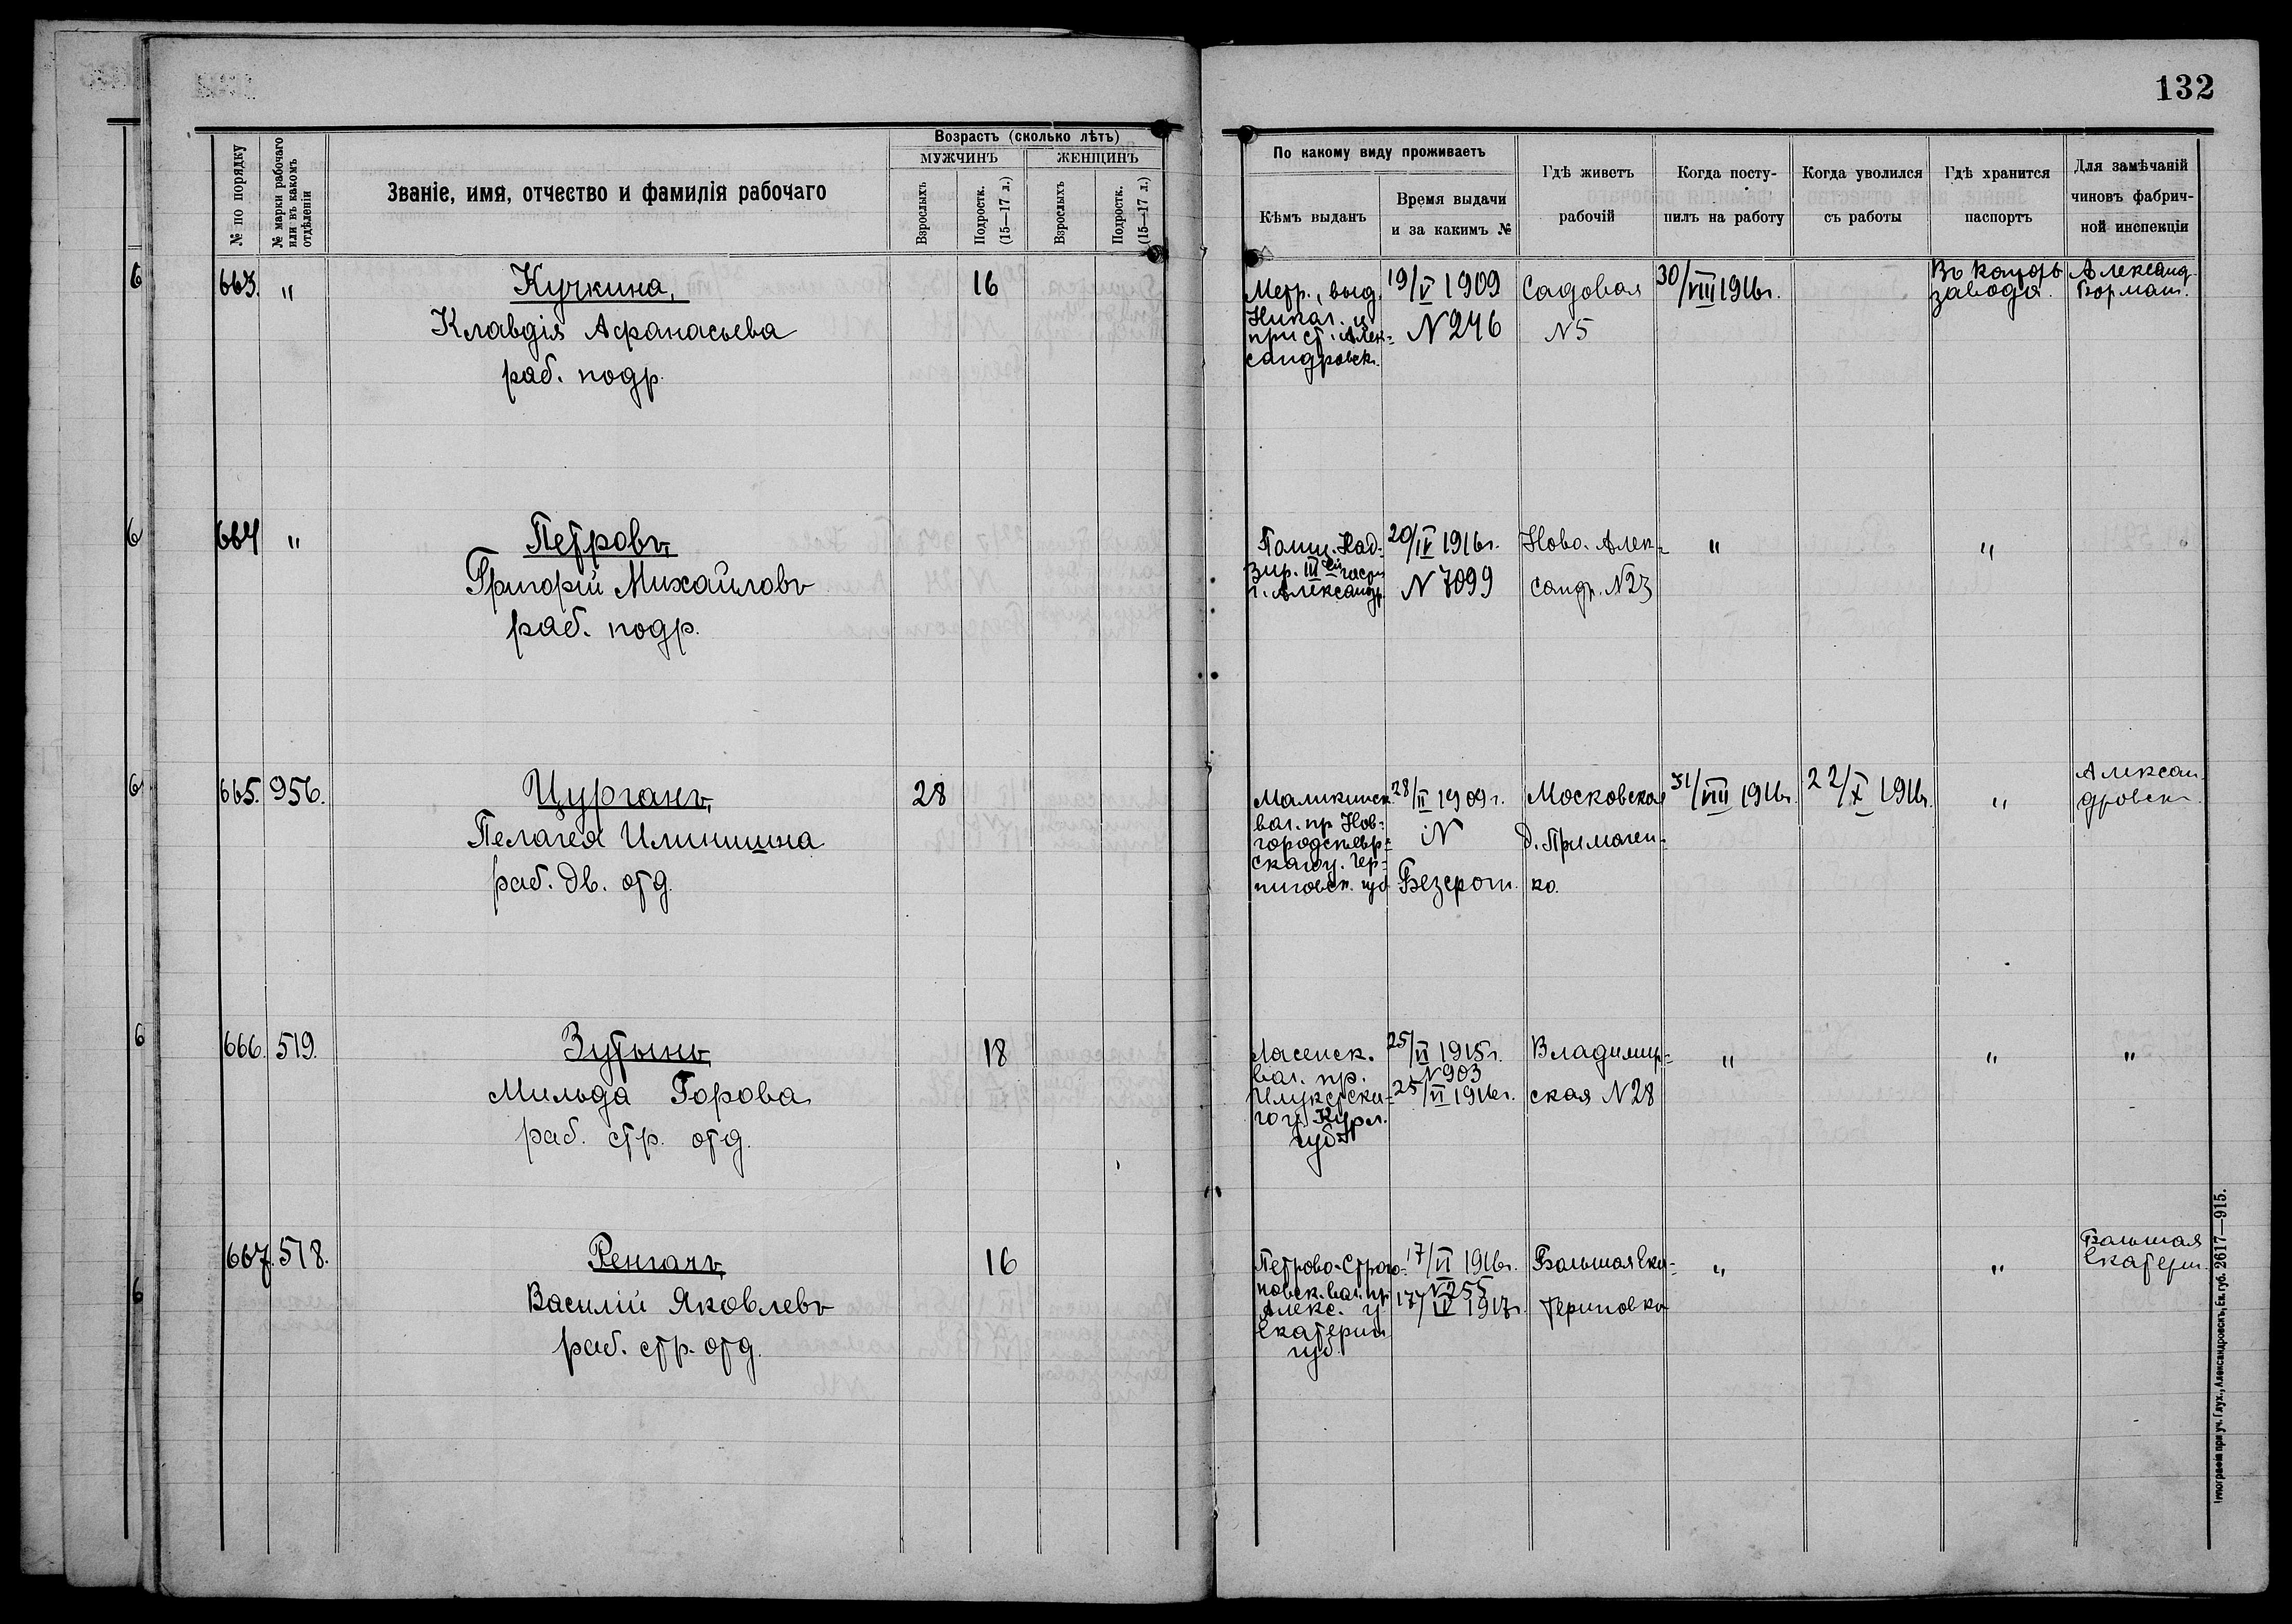 132
Возрастъ (сколько лѣтъ)
МУЖЧИНЪ ЖЕНЩИНЪ
№ по порядку
№ марки рабочаго или въ какомъ отдѣленіи
Званіе, имя, отчество и фамилія рабочаго
Взрослыхъ
Подростк. (15—17 л.)
Взрослыхъ
Подростк. (15—17 л.)
По какому виду проживаетъ
Кѣмъ выданъ
Время выдачи
и за какимъ №
Гдѣ живетъ
рабочій
Когда посту-
пилъ на работу
Когда уволился
съ работы
Гдѣ хранится
паспортъ
Для замѣчаній
чиновъ фабрич-
ной инспекціи
663. "
Кучкина,
Клавдія Афанасьева
раб. подр.
16
Метр., выд.
Никол. ц.
при ст. Алек-
сандровск.
19/V 1909
N 246
Садовая
N 5
30/VIII 1916г.
Въ конторѣ
завода.
Александ.
664 "
Петровъ,
Григорій Михайловъ
раб. подр.
Полиц. Над-
зир. III ей части
г. Александр.
20/IV 1916г.
N 7099
Ново-Алек-
сандр. N 23
"
"
665. 956.
Цурганъ,
Пелагея
раб. дв. отд.
28
вол. пр Нов-
городсѣвер-
скаго у. Чер-
ниговск. губ
28/II 1909г.
N
Безсроч.
Московская
д. Примачен-
ко.
31/VIII 1916г.
22/X 1916г.
"
Алексан-
дровск
666. 519.
Зутынь,
Мильда
раб. стр. отд.
18
вол. пр.
Иллукстска-
го у. Курл.
губ
25/VI 1915г.
N 903
25/VI 1916г.
Владимир-
ская N 28
"
"
"
667. 518.
Ренгачъ,
Василій Яковлевъ
раб. стр. отд.
16
Алекс. у
Екатерин
губ.
17/VI 1916г.
N 255
17/IV 1917г.
Большая Ека-
териновка
"
"
Большая
Екатерин.
Типографія при уч. Глух., Александровскъ, Ек. губ. 2617—915.